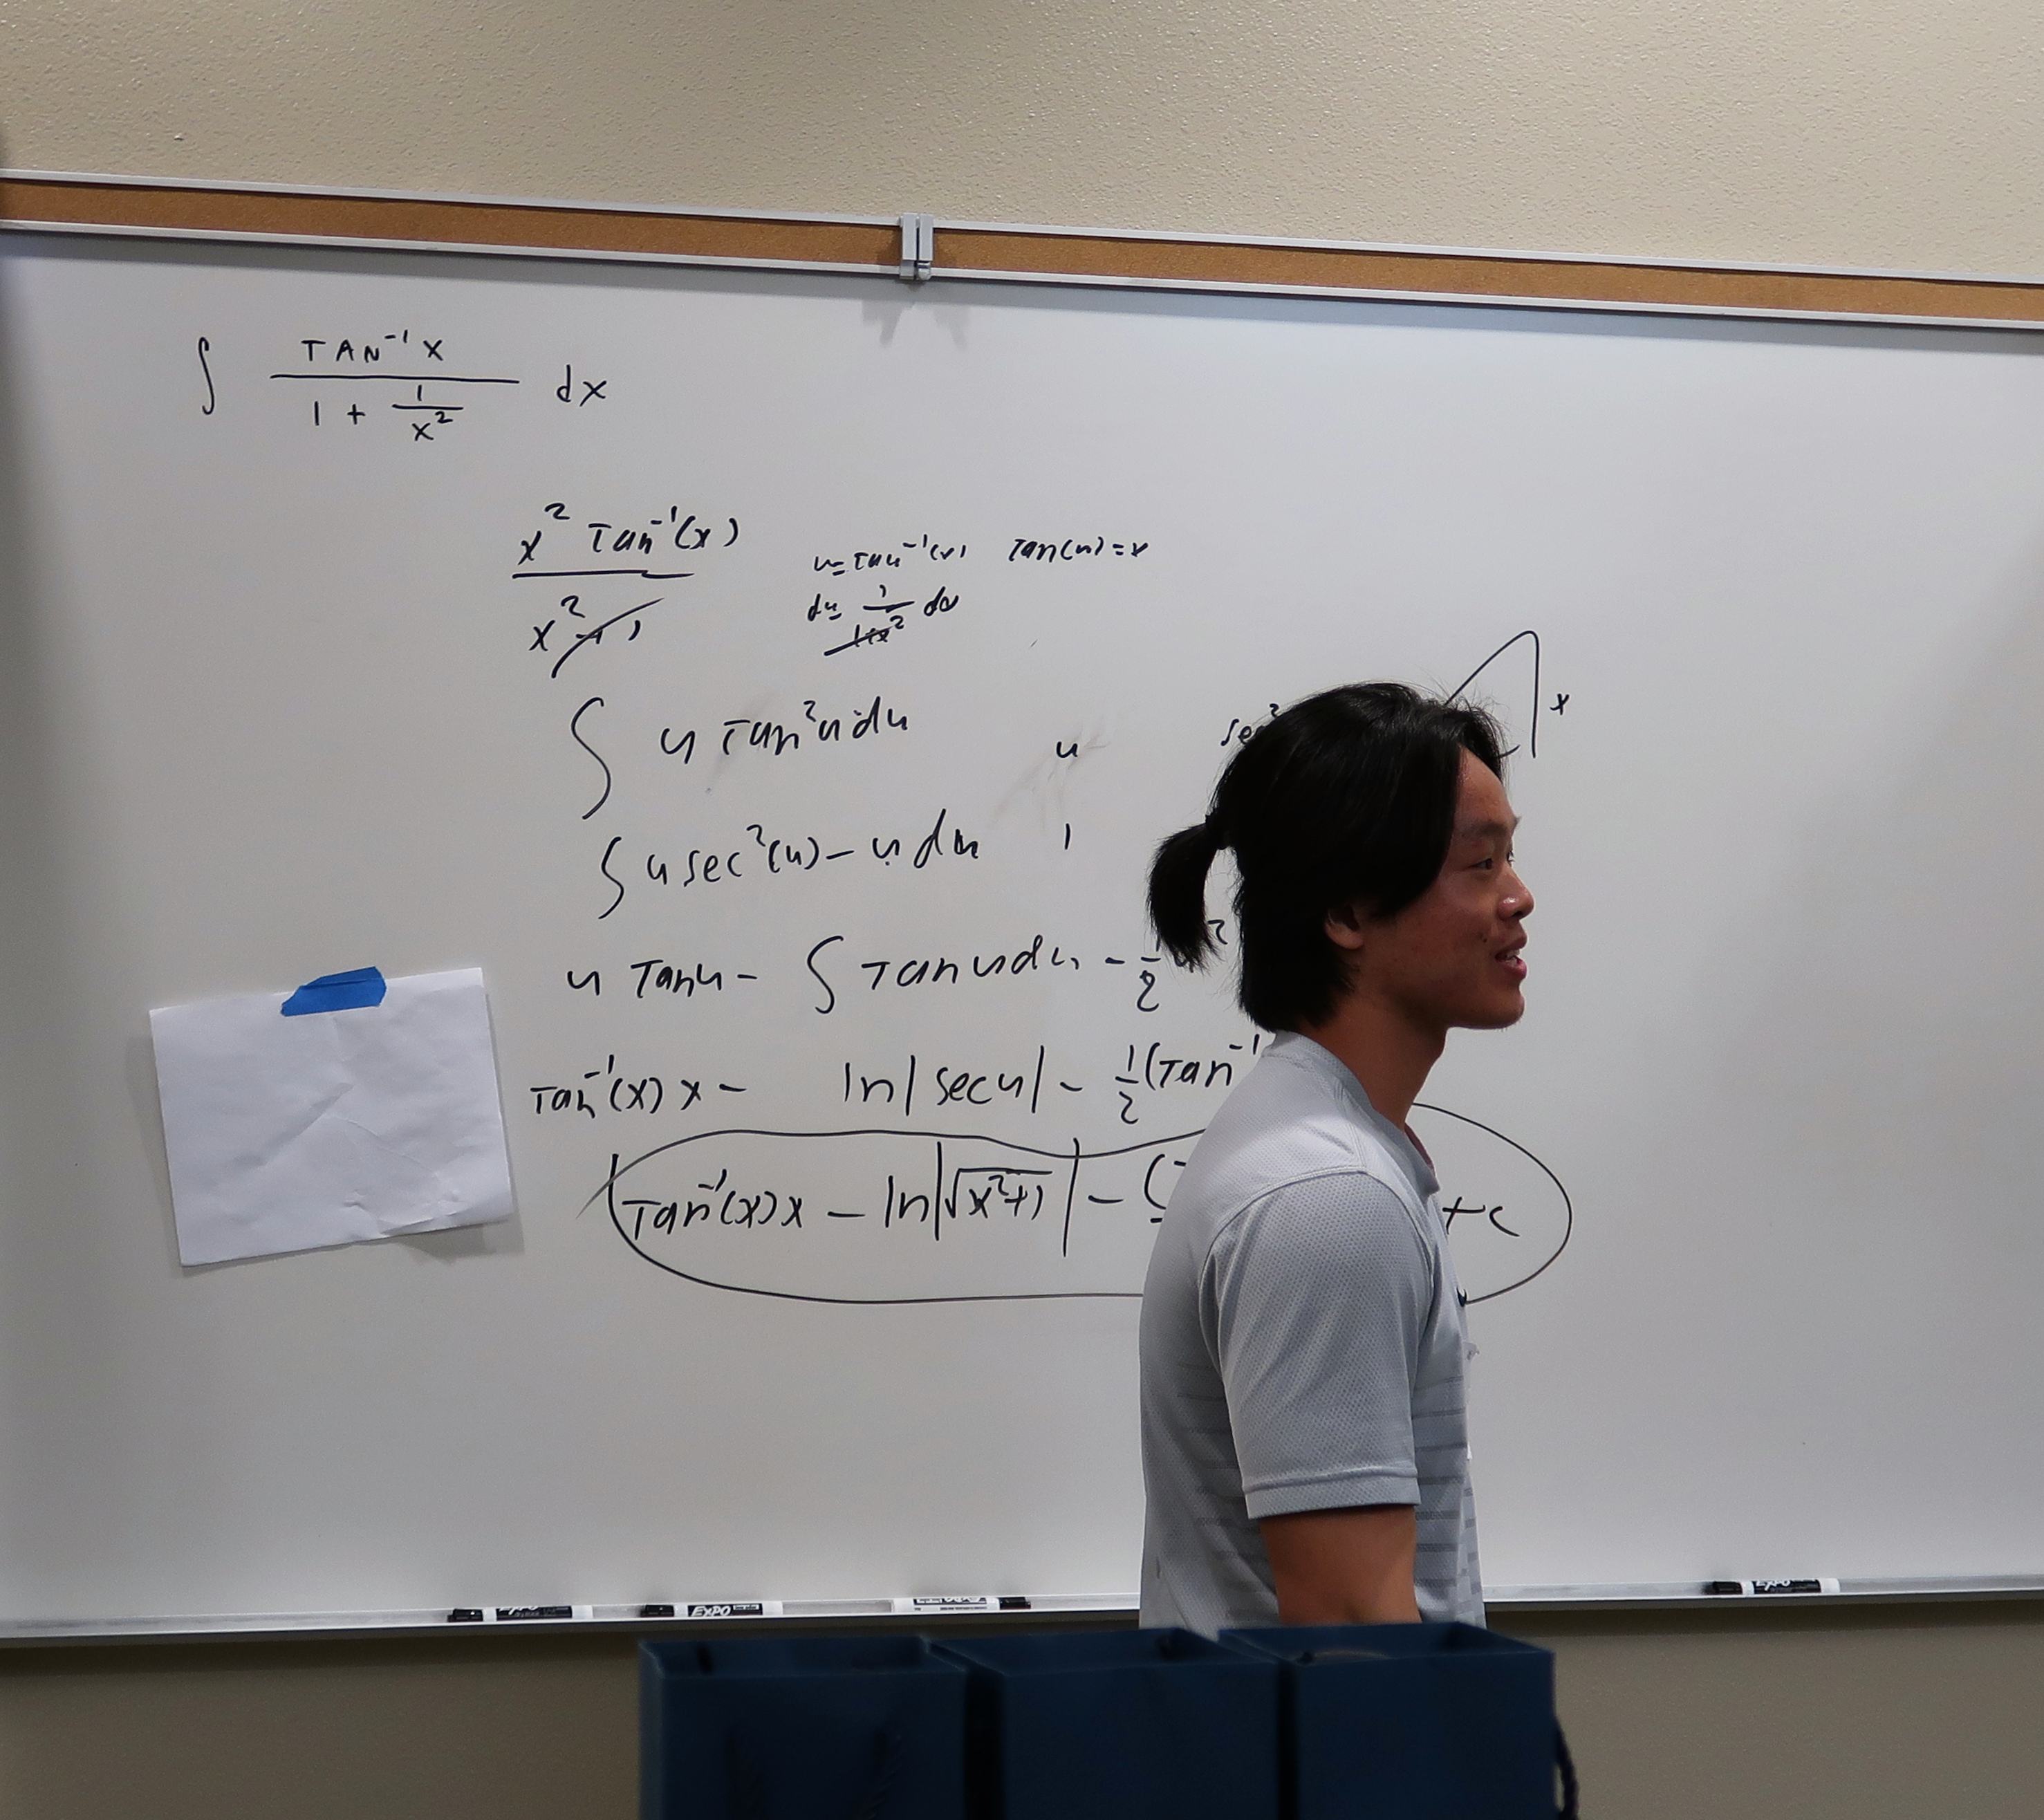 ∫ TAN⁻¹ X / (1 + 1/X²) dx
x² Tan⁻¹(x) / x²+1
u = Tan⁻¹(x) Tan(u) = x
du = 1/(1+x²) dx
x
∫ u Tan²u du
u sec²
∫ u sec²(u) - u du
1
u Tanu - ∫ Tan u du - 1/2 u²
Tan⁻¹(x) x - ln|sec u| - 1/2 (Tan⁻¹
Tan⁻¹(x) x - ln|√x²+1| - ( + c
EXPO
EXPO
EXPO